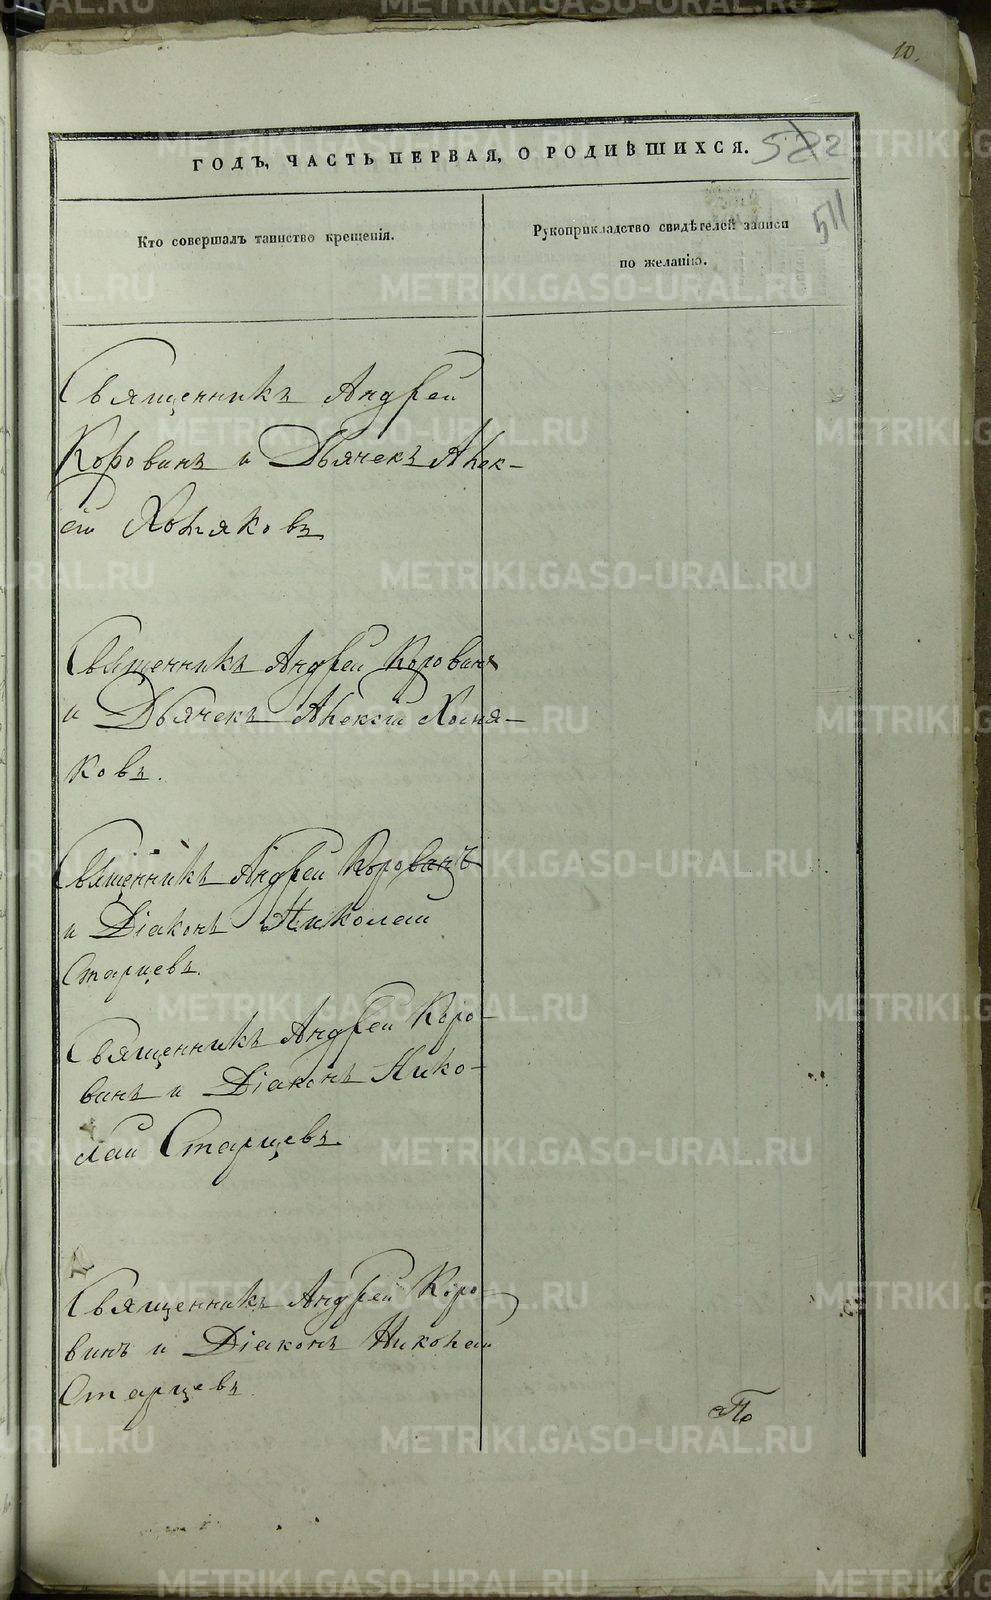 10.
ГОДЪ, ЧАСТЬ ПЕРВАЯ, О РОДИВШИХСЯ.
522
511
Кто совершалъ таинство крещенія.
Рукоприкладство свидѣтелей записи
по желанію.
Священникъ Андрей
Корованъ и Дьячекъ Алек-
ѣй Хоняковъ
Священникъ Андрей Корованъ
и Дьячекъ Алексѣй Хомя-
ковъ.
Священникъ Андрей Корованъ
и Діаконъ Николай
Старцевъ.
Священникъ Андрей Коро-
ванъ и Діаконъ Нико-
лай Старцевъ.
Священникъ Андрей Коро-
винъ и Діаконъ Николай
Старцевъ
По
METRIKI.GASO-URAL.RU